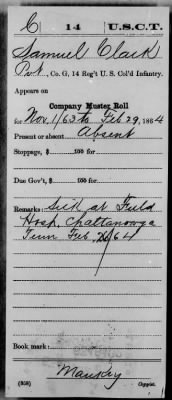 C 14 U.S.C.T.
Samuel Clark
Pvt, Co. G, 14 Reg't U. S. Col'd Infantry.
Appears on
Company Muster Roll
for Nov 1/63 to Feb 29, 1864
Present or absent Absent
Stoppage, $ 100 for
Due Gov't, $ 100 for
Remarks Sick at Field
Hosp. Chattanooga
Tenn Feb. /64
Book mark:
(358) Copyist.